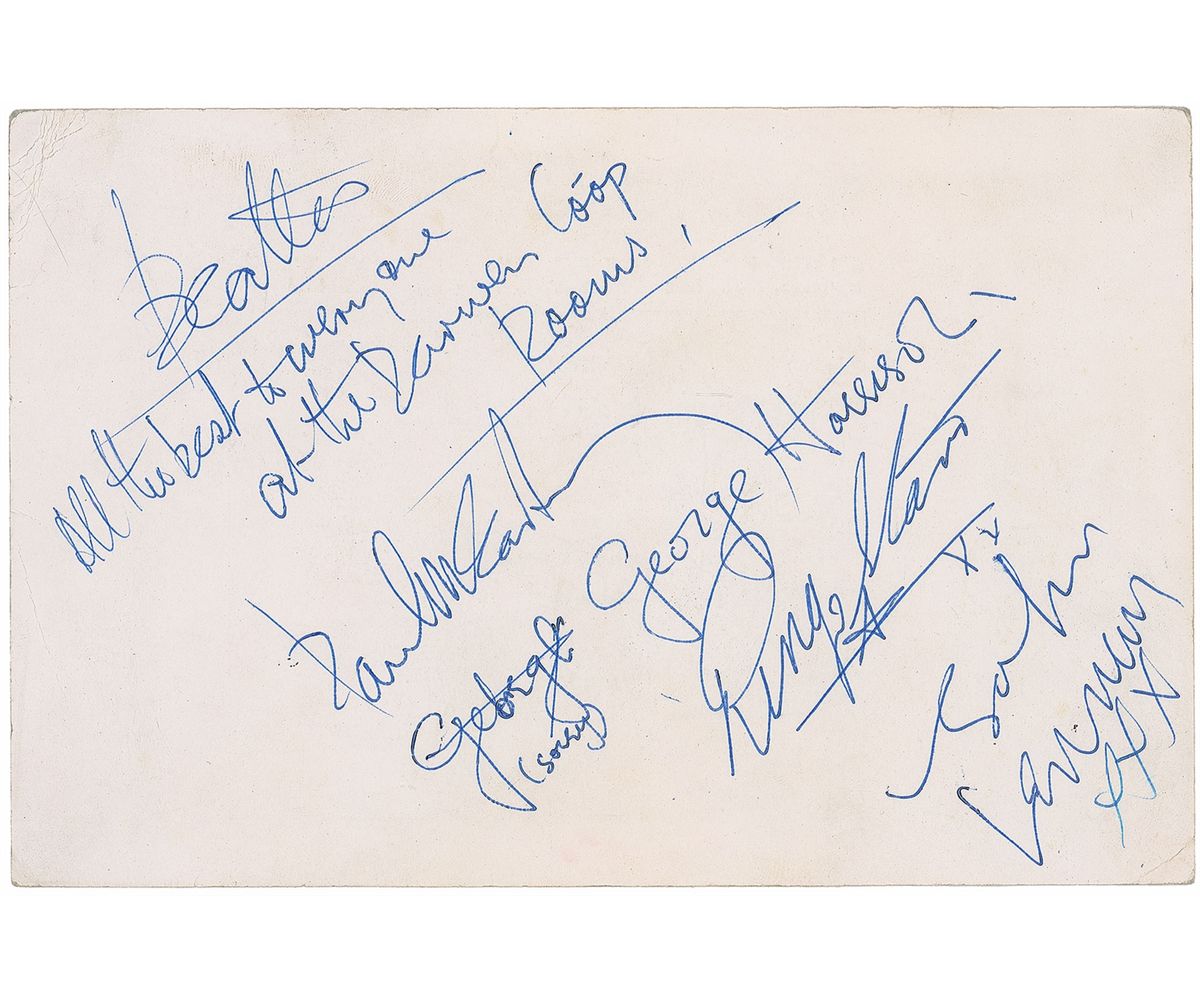 Beatles
All the best to everyone
at the Darwen Coop
Rooms!
Paul McCartney
George
(sorry)
George Harrison
Ringo Starr
xx
John
Lennon
xxx